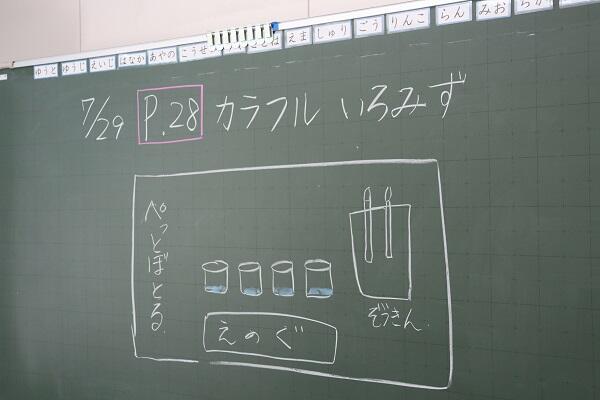 ゆうと ゆうじ えいじ はなか あやの こうせ えま しゅり ごう りんこ らん みお
7/29 P.28 カラフル いろみず
ぺっとぼとる
えのぐ
ぞうきん